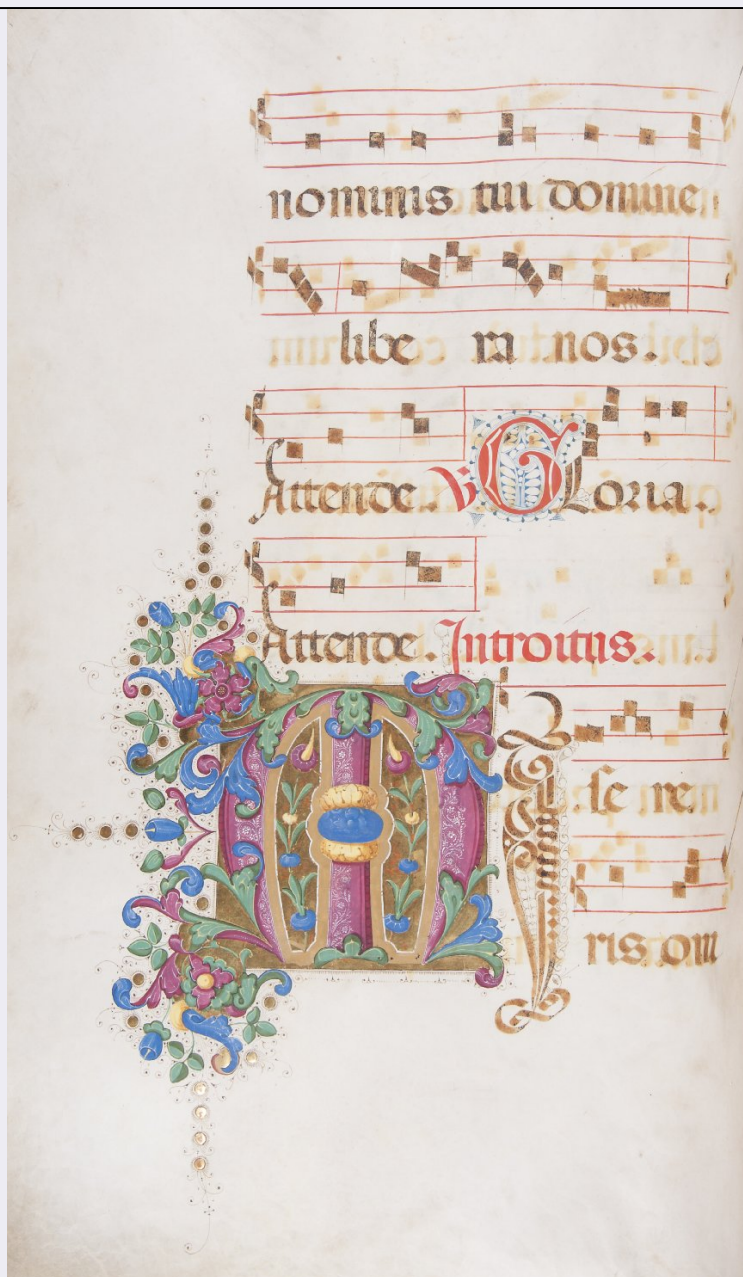 nominis tui domine
libe ra nos.
Attende. V Gloria.
Attende. Introitus.
MI se re
ris om